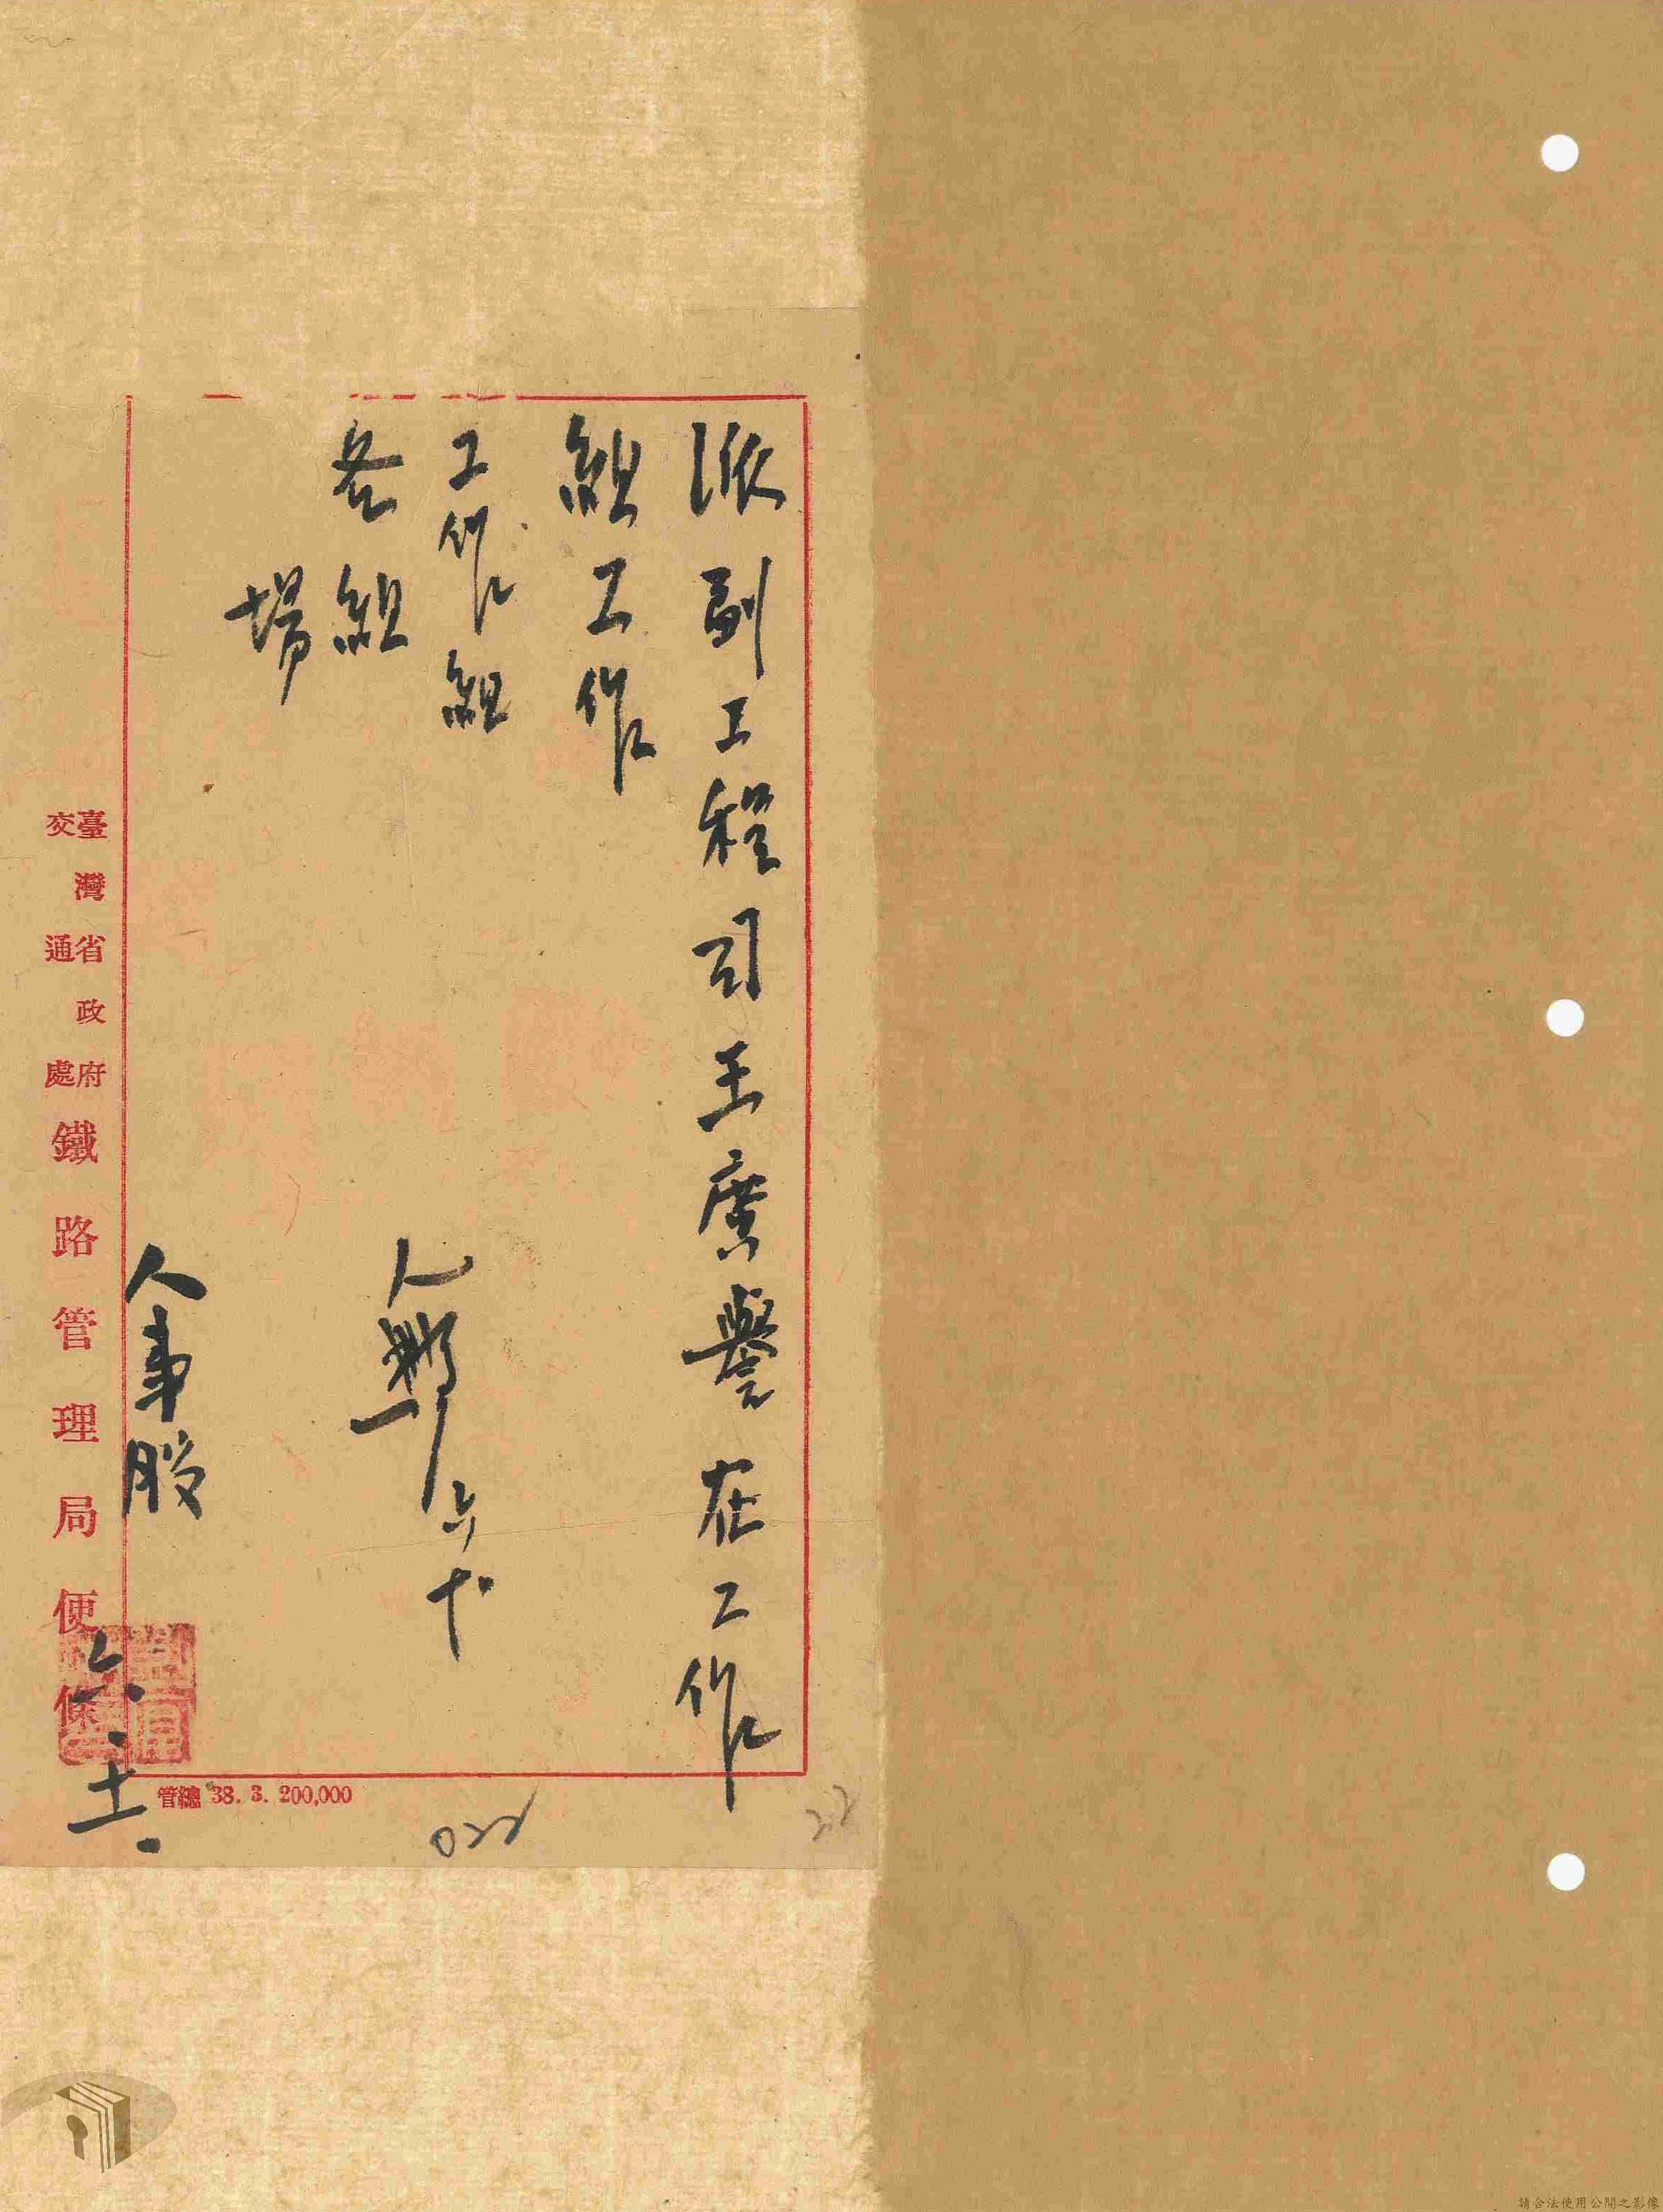 派副工程司王廣譽在工作
組工作
工作組
各組
場
六十
人事股
六.十一.
臺灣省政府
交通處
鐵路管理局便條
管總 38. 3. 200,000
022
22
請合法使用公開之影像